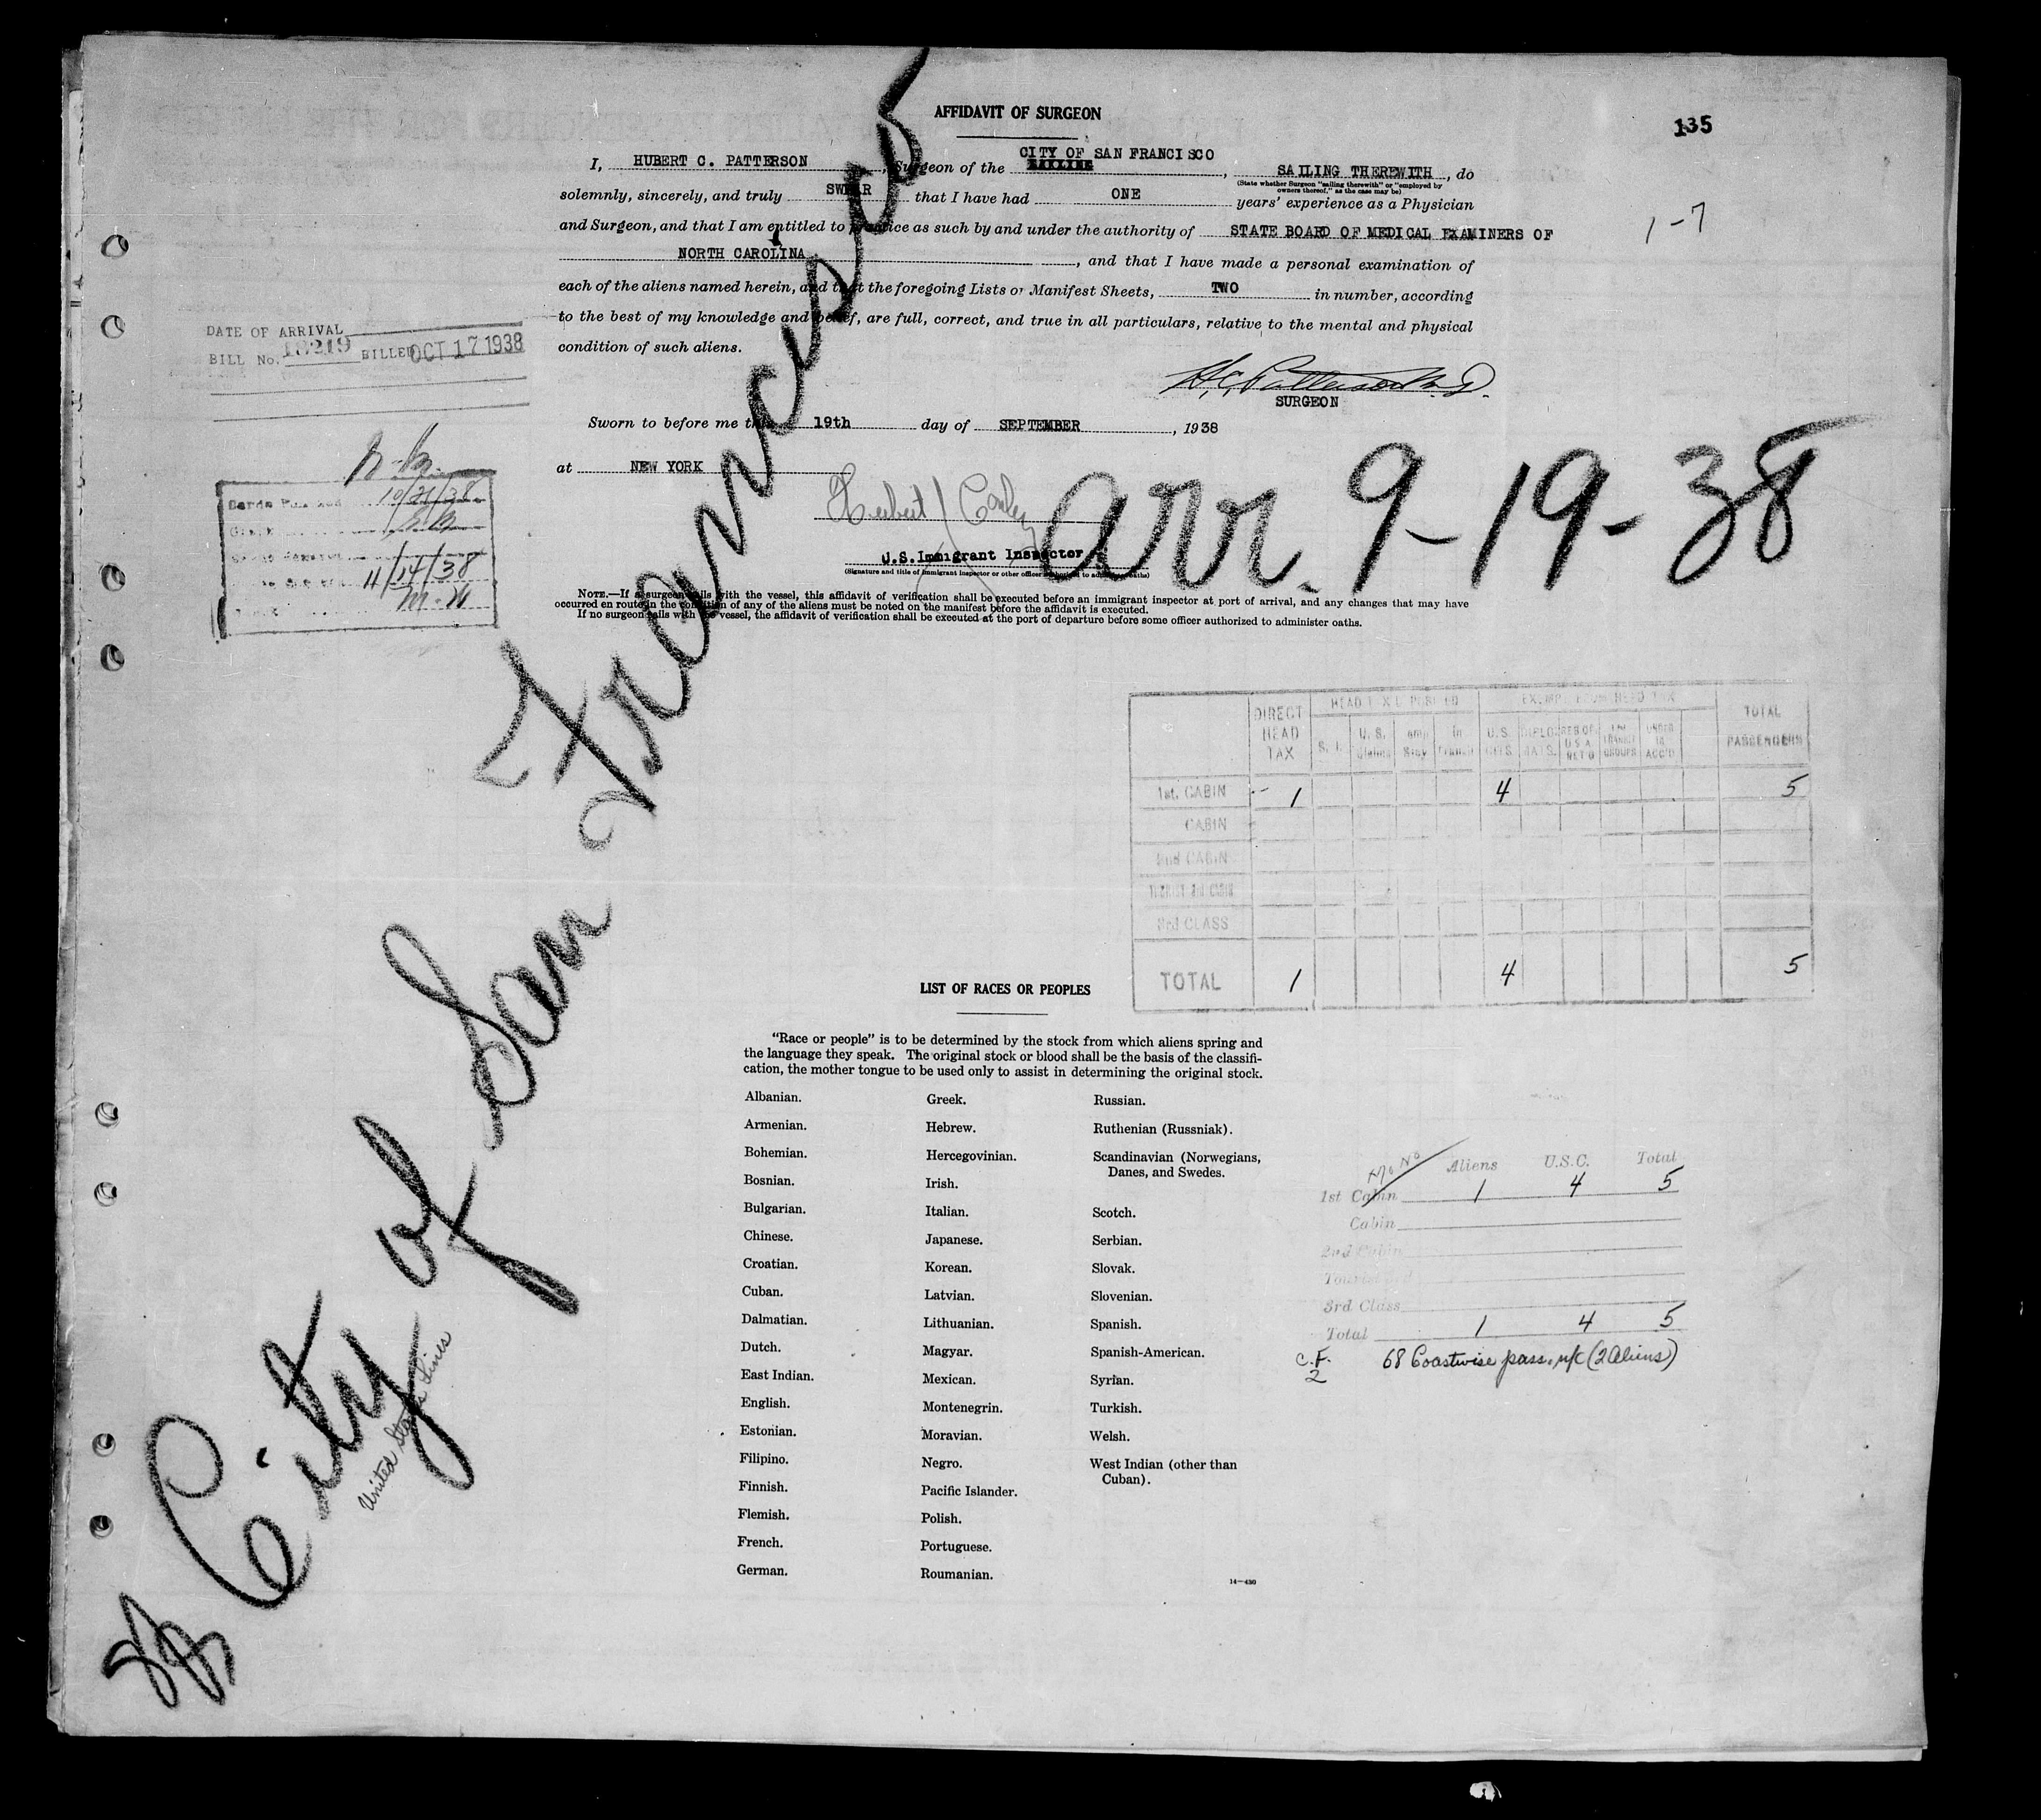 AFFIDAVIT OF SURGEON
135
I, HUBERT C. PATTERSON, Surgeon of the CITY OF SAN FRANCISCO, SAILING THEREWITH, do
(State whether Surgeon "sailing therewith" or "employed by
owners thereof," as the case may be)
solemnly, sincerely, and truly SWEAR that I have had ONE years' experience as a Physician
and Surgeon, and that I am entitled to practice as such by and under the authority of STATE BOARD OF MEDICAL EXAMINERS OF
1-7
NORTH CAROLINA, and that I have made a personal examination of
each of the aliens named herein, and that the foregoing Lists or Manifest Sheets, TWO in number, according
to the best of my knowledge and belief, are full, correct, and true in all particulars, relative to the mental and physical
condition of such aliens.
DATE OF ARRIVAL
BILL No. 18219 BILLED OCT 17 1938
H. C. Patterson M.D.
SURGEON
Sworn to before me this 19th day of SEPTEMBER, 1938
at NEW YORK
10/21/38
11/14/38
Arr. 9-19-38
U.S. Immigrant Inspector
(Signature and title of immigrant inspector or other officer authorized to administer oaths)
NOTE.—If a surgeon sails with the vessel, this affidavit of verification shall be executed before an immigrant inspector at port of arrival, and any changes that may have
occurred en route in the condition of any of the aliens must be noted on the manifest before the affidavit is executed.
If no surgeon sails with the vessel, the affidavit of verification shall be executed at the port of departure before some officer authorized to administer oaths.
SS City of San Francisco
United States Lines
DIRECT HEAD TAX
U.S. CITS.
TOTAL PASSENGERS
1st. CABIN 1 4 5
CABIN
2nd CABIN
3rd CLASS
TOTAL 1 4 5
LIST OF RACES OR PEOPLES
"Race or people" is to be determined by the stock from which aliens spring and
the language they speak. The original stock or blood shall be the basis of the classifi-
cation, the mother tongue to be used only to assist in determining the original stock.
Albanian.
Armenian.
Bohemian.
Bosnian.
Bulgarian.
Chinese.
Croatian.
Cuban.
Dalmatian.
Dutch.
East Indian.
English.
Estonian.
Filipino.
Finnish.
Flemish.
French.
German.
Greek.
Hebrew.
Hercegovinian.
Irish.
Italian.
Japanese.
Korean.
Latvian.
Lithuanian.
Magyar.
Mexican.
Montenegrin.
Moravian.
Negro.
Pacific Islander.
Polish.
Portuguese.
Roumanian.
Russian.
Ruthenian (Russniak).
Scandinavian (Norwegians,
Danes, and Swedes.
Scotch.
Serbian.
Slovak.
Slovenian.
Spanish.
Spanish-American.
Syrian.
Turkish.
Welsh.
West Indian (other than
Cuban).
14—430
Aliens U.S.C. Total
1st Cabin 1 4 5
Cabin
2nd Cabin
3rd Class
Total 1 4 5
C.F. 68 Coastwise pass. n/c (2 Aliens)
2